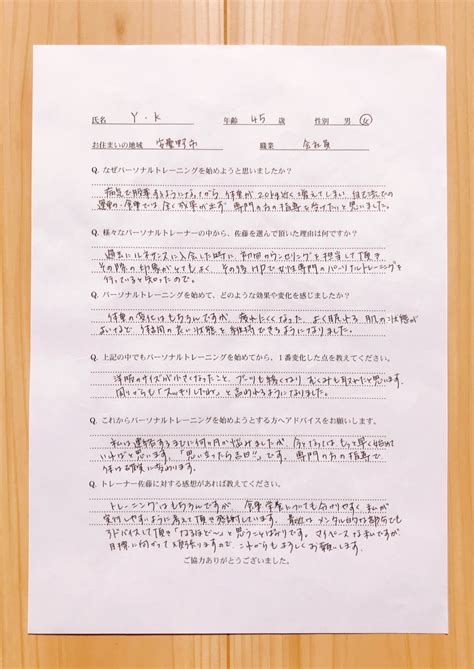 氏名 Y・K 年齢 45 歳 性別 男 女
お住まいの地域 安曇野市 職業 会社員
Q. なぜパーソナルトレーニングを始めようと思いましたか?
病気で服薬するようになってから 体重が20kg近く増えてしまい 自己流での
運動・食事では 全く成果が出ず 専門の方の指導を受けたいと思いました。
Q. 様々なパーソナルトレーナーの中から、佐藤を選んで頂いた理由は何ですか?
過去にルネサンスに入会した時に 初回のカウンセリングを担当して頂き
その際の印象がとてもよく その後 HPで女性専門のパーソナルトレーニングを
行っていると知ったので。
Q. パーソナルトレーニングを始めて、どのような効果や変化を感じましたか?
体重の変化はもちろんですが 疲れにくくなった よく眠れる 肌の状態が
よいなど 体調の良い状態を維持できるようになりました。
Q. 上記の中でもパーソナルトレーニングを始めてから、1番変化した点を教えてください。
洋服のサイズが小さくなったこと、ブーツも緩くなり むくみも取れたと思います。
周りからも「スッキリしたね」と言われるようになりました。
Q. これからパーソナルトレーニングを始めようとする方へアドバイスをお願いします。
私は連絡するまでに何ヶ月か悩みましたが 今となっては もっと早く始めて
いればと思います。「思い立ったら吉日!!」です。専門の方の指導で
体は確実に変わります。
Q. トレーナー佐藤に対する感想があれば教えてください。
トレーニングはもちろんですが 食事 栄養についても分かりやすく 私が
実行しやすいように考えて頂き感謝しています。最近は メンタル的な部分でも
アドバイスして頂き「なるほど〜」と思うことばかりです。マイペースな私ですが
目標に向かって頑張りますので これからもよろしくお願いします。
ご協力ありがとうございました。